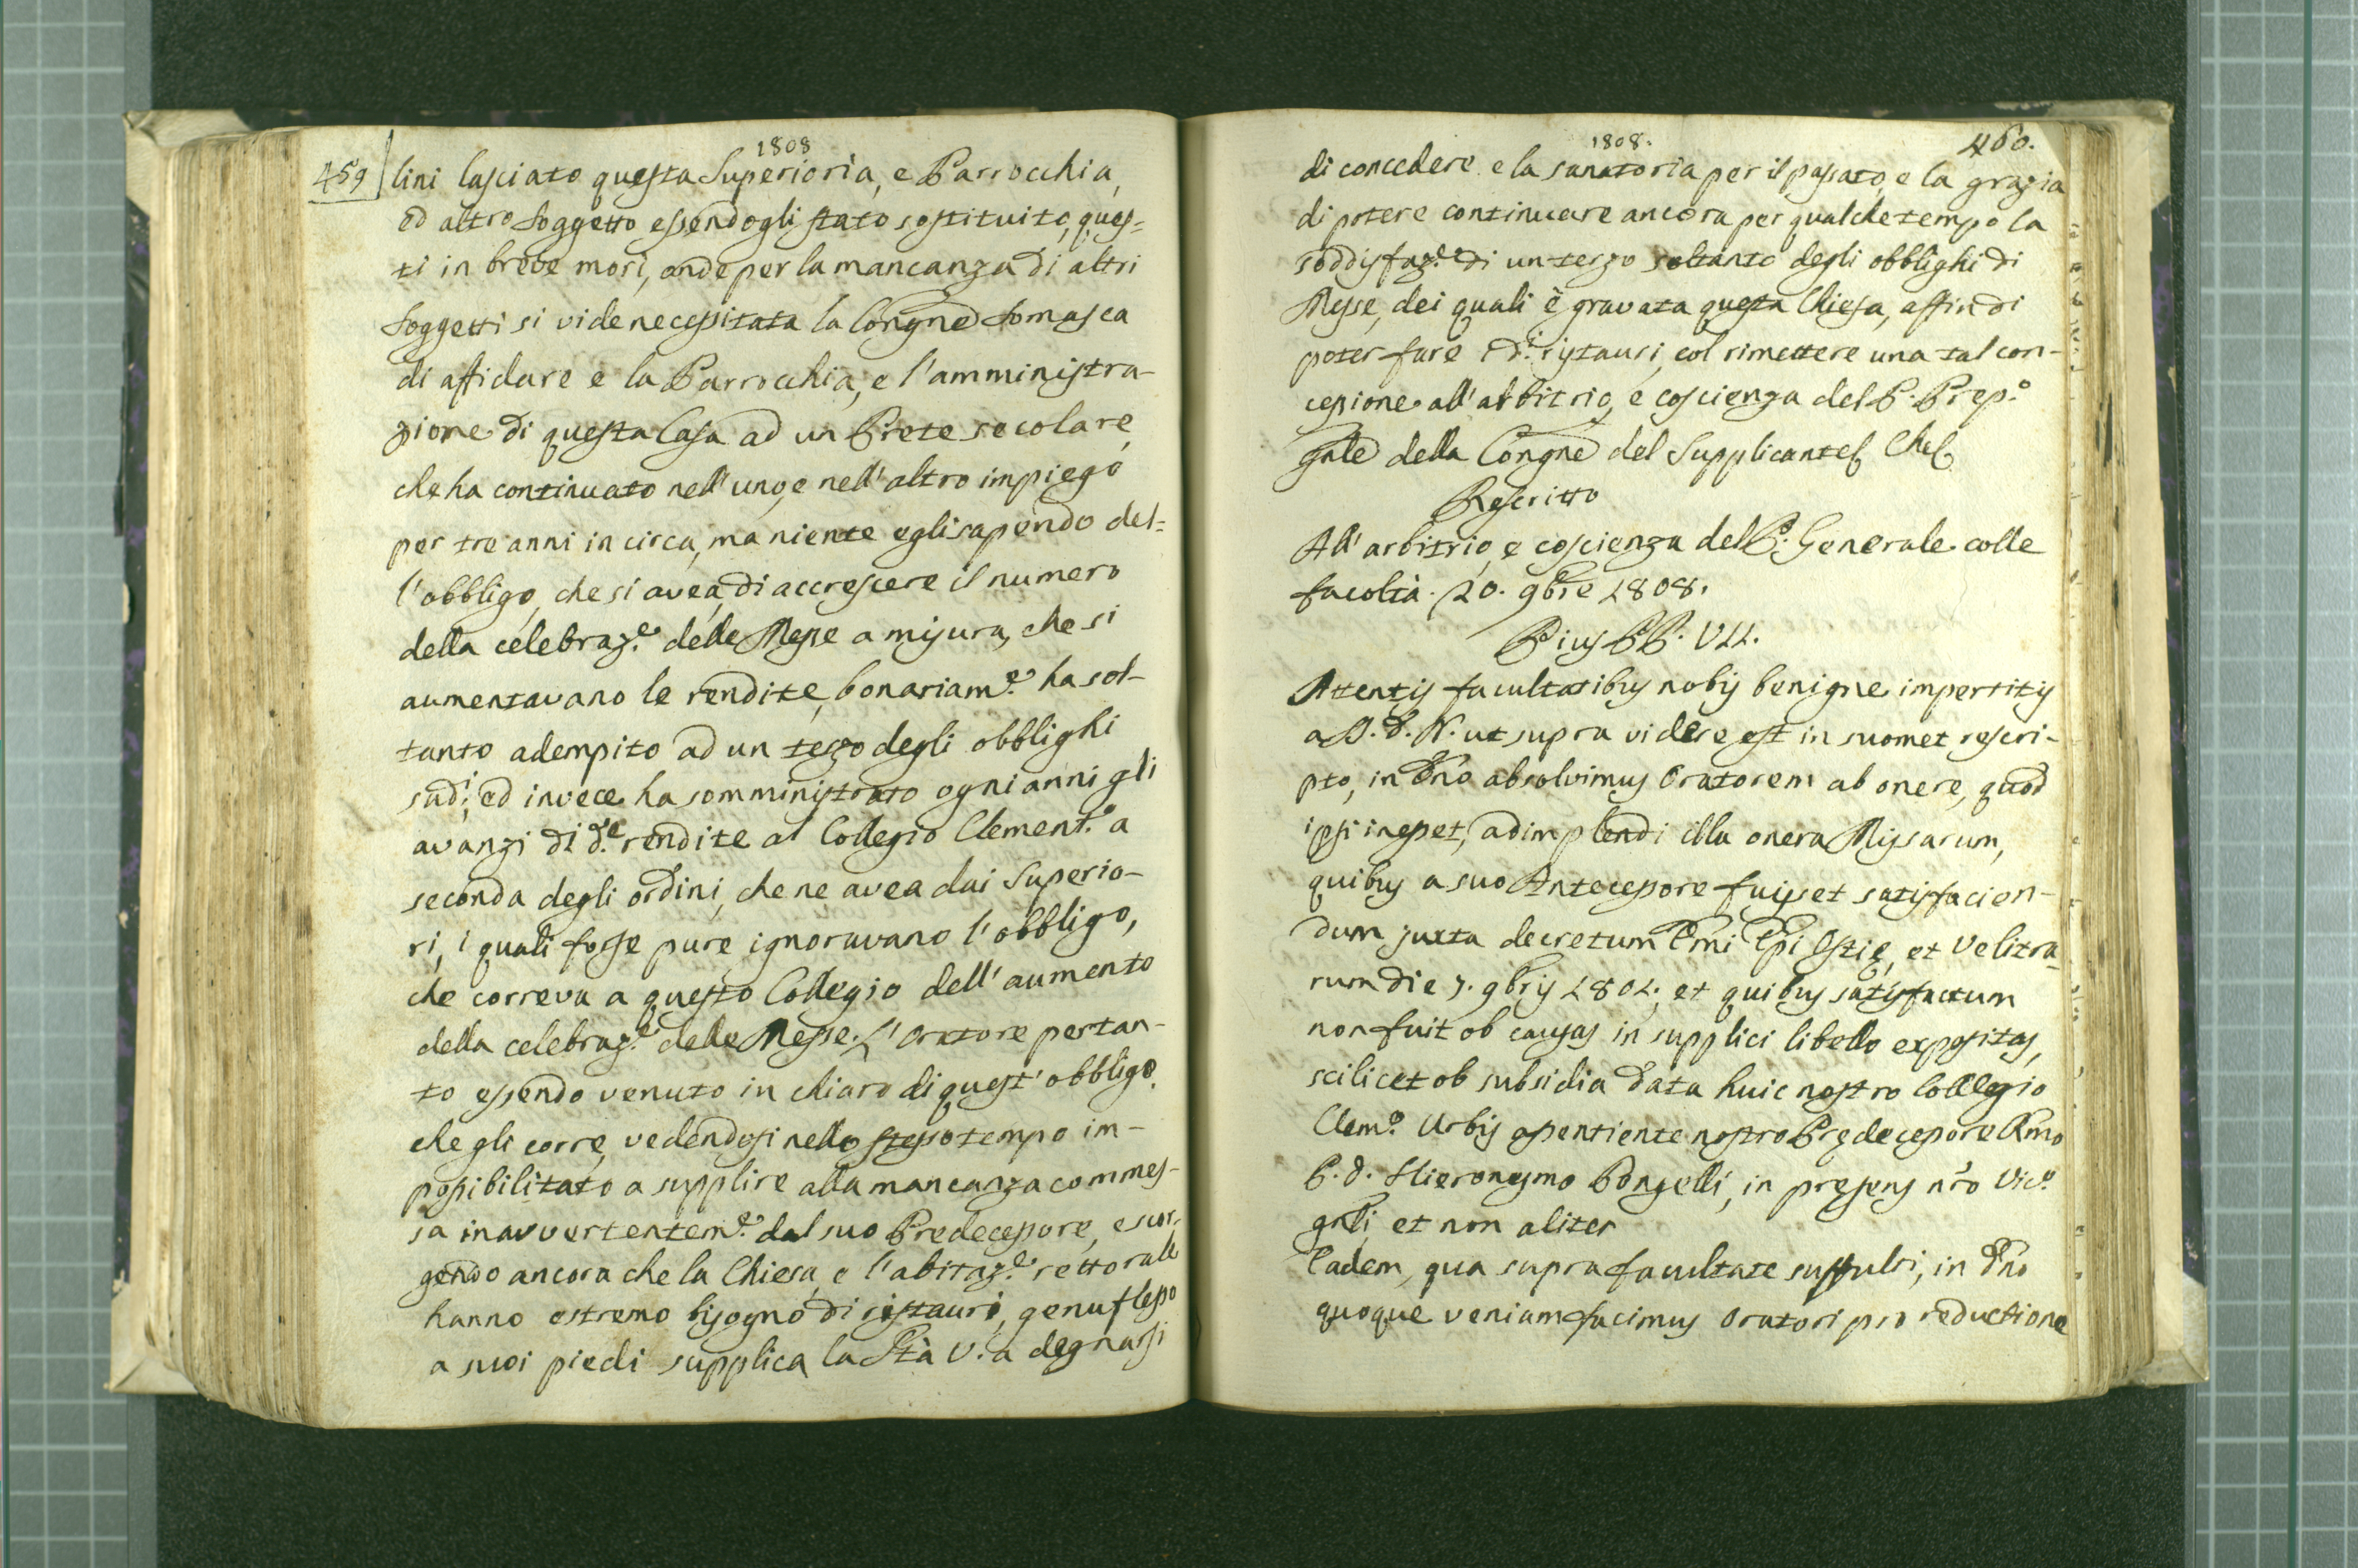 1808
459
lini lasciato questa Superiorìa, e Parrocchia,
ed altro Soggetto essendogli stato sostituito, ques=
ti in breve morì, onde per la mancanza di altri
Soggetti si vide necessitata la Congne Somasca
di affidare e la Parrocchia, e l'amministra-
zione di questa Casa ad un Prete secolare,
che ha continuato nell'uno, e nell'altro impiego
per tre anni in circa, ma niente egli sapendo del=
l'obbligo, che si avea, di accrescere il numero
della celebraz.e delle Messe a misura, che si
aumentavano le rendite, bonariam.e ha sol-
tanto adempito ad un terzo degli obblighi
sud.i, ed invece ha somministrato ogni anni gli
avanzi di d.e rendite al Collegio Clement.o a
seconda degli ordini, che ne avea dai Superio-
ri, i quali forse pure ignoravano l'obbligo,
che correva a questo Collegio dell'aumento
della celebraz.e delle Messe. L'Oratore pertan-
to essendo venuto in chiaro di quest'obbligo,
che gli corre, vedendosi nello stesso tempo im-
possibilitato a supplire alla mancanza commes-
sa inavvertentem.e dal suo Predecessore, e scor-
gendo ancora che la Chiesa, e l'abitaz.e rettorale
hanno estremo bisogno di ristauri, genuflesso
a suoi piedi supplica la Stà V.a degnarsi
1808.
460.
di concedere e la sanatoria per il passato, e la grazia
di potere continuare ancora per qualche tempo la
soddisfaz.e di un terzo soltanto degli obblighi di
Messe, dei quali è gravata questa Chiesa, affin di
poter fare i d.i ristauri, col rimettere una tal con-
cessione all'arbitrio, e coscienza del P. Prep.o
gnle della Congne del Supplicante Che
Rescritto
All'arbitrio, e coscienza del P. Generale colle
facoltà. 20. 9bre 1808.
Pius PP. VII.
Attentis facultatibus nobis benigne impertitis
a S. D. N. ut supra videre est in suomet rescri-
pto, in Dno absolvimus Oratorem ab onere, quod
ipsi inesset, adimplendi illa onera Missarum,
quibus a suo Antecessore fuisset satisfacien-
dum juxta decretum Emi Epi Ostię, et Velitra-
rum die 7. 9bris 1801., et quibus satisfactum
non fuit ob causas in supplici libello expositas,
scilicet ob subsidia data huic nostro Collegio
Clem.o Urbis assentiente nostro Prędecessore Rmo
P. D. Hieronymo Pongelli, in pręsens nro Vic.o
gnli, et non aliter
Eadem, qua supra facultate suffulti, in Dno
quoque veniam facimus Oratori pro reductione